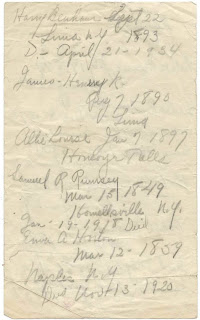 Harry Denham Sept 22
Lima N.Y. 1893
D. - April 21 - 1934
James - Henry K.
Aug 7, 1895
Lima
Allie Louise Jan 7 1897
Honeoye Falls
Samuel R Rumsey
Mar 15 1849
Hornellsville N.Y.
Jan - 19 - 1918 Died
Emma A
Mar 12 - 1859
Naples N.Y.
Died Nov 13 - 1920